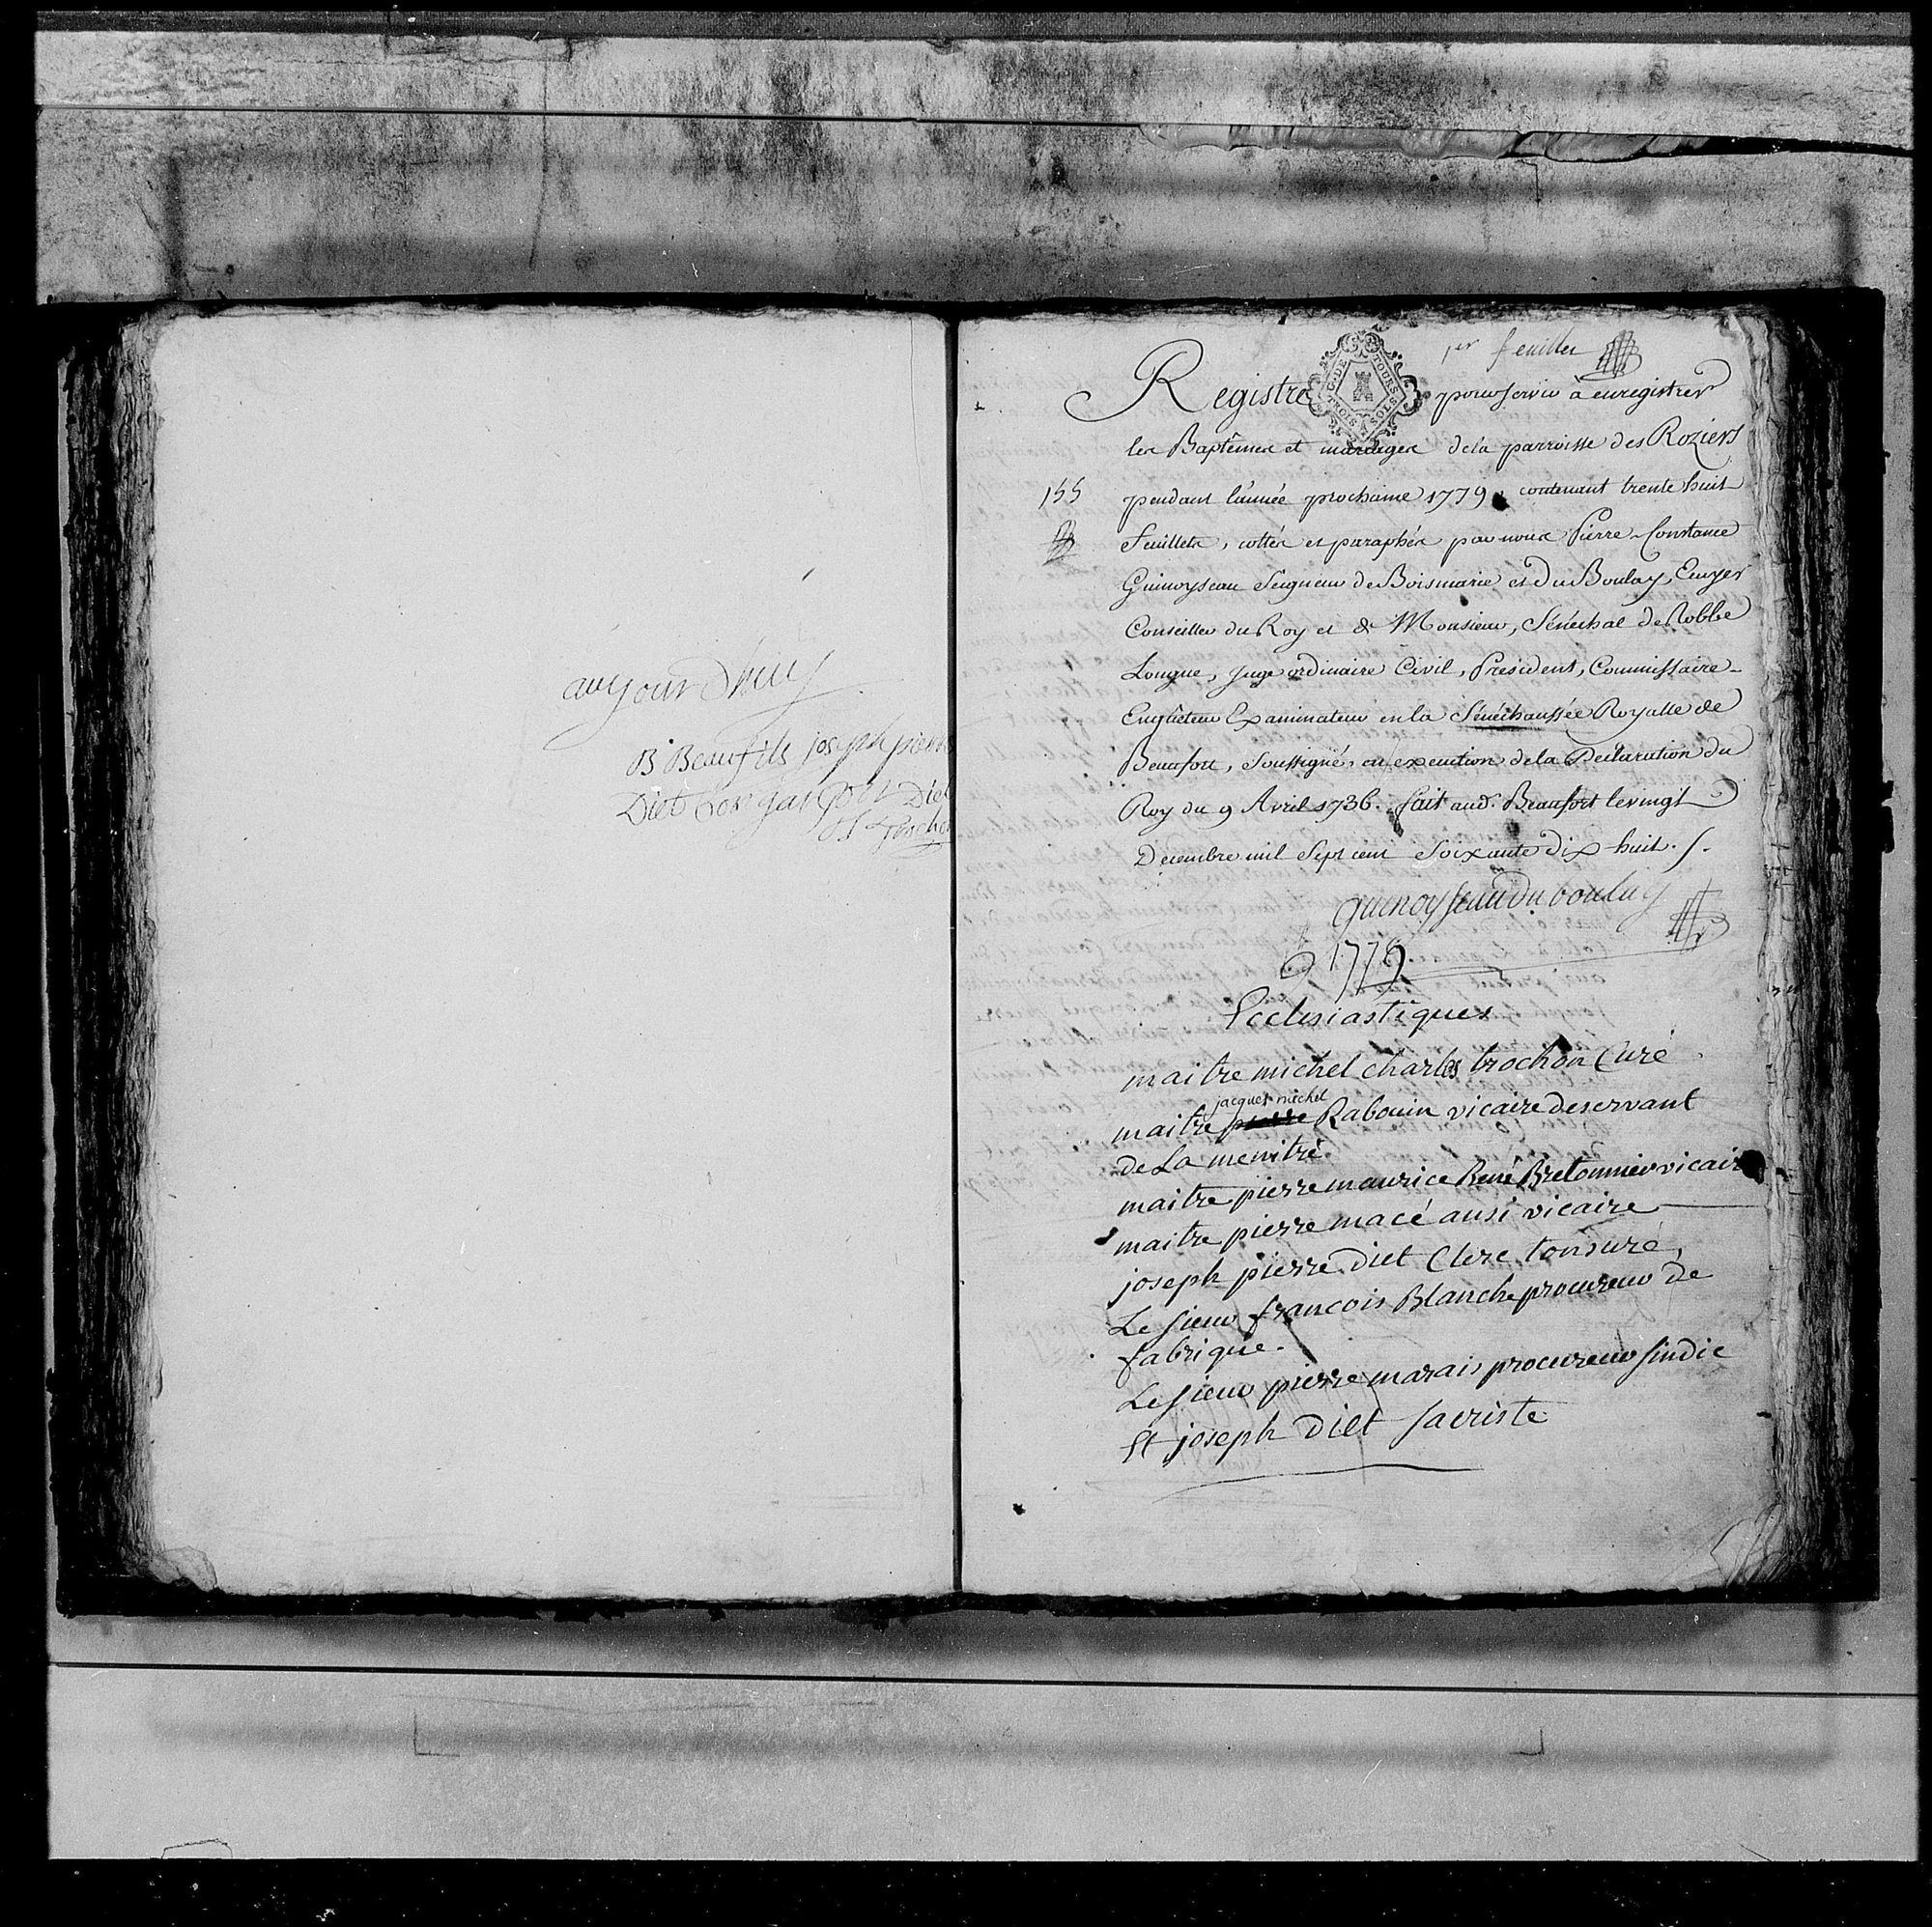 aujourdhuy
B Beaufils joseph pierre
Diet
1er feuillet
G. DE TOURS
TROIS SOLS
Registre pour servir à enregistrer
les Baptêmes et mariages de la parroisse des Roziers
155
pendant l'année prochaine 1779, contenant trente huit
feuillets, cottés et paraphés par nous Pierre-Constance
Guinoyseau Seigneur de Boismarie et Du Boulay, Ecuyer
Conseiller du Roy et de Monsieur, Sénéchal de Robbe
Longue, Juge ordinaire Civil, President, Commissaire-
Enquêteur Examinateur en la Sénéchaussée Royalle de
Beaufort, Soussigné, en execution de la Declaration du
Roy du 9 Avril 1736. fait aud. Beaufort le vingt
Decembre mil Sept cent Soixante dix-huit. /.
guinoysseau du boulay
1779
Ecclesiastiques
maitre michel charles trochon Curé
jacques michel
maitre pierre Rabouin vicaire deservant
de La menitré
maitre pierre maurice René Bretonnier vicaire
maitre pierre macé ausi vicaire
joseph pierre diet Clerc tonsuré,
Le sieur francois Blanche procureur de
fabrique.
Le sieur pierre marais procureur sindic
Et joseph diet sacriste